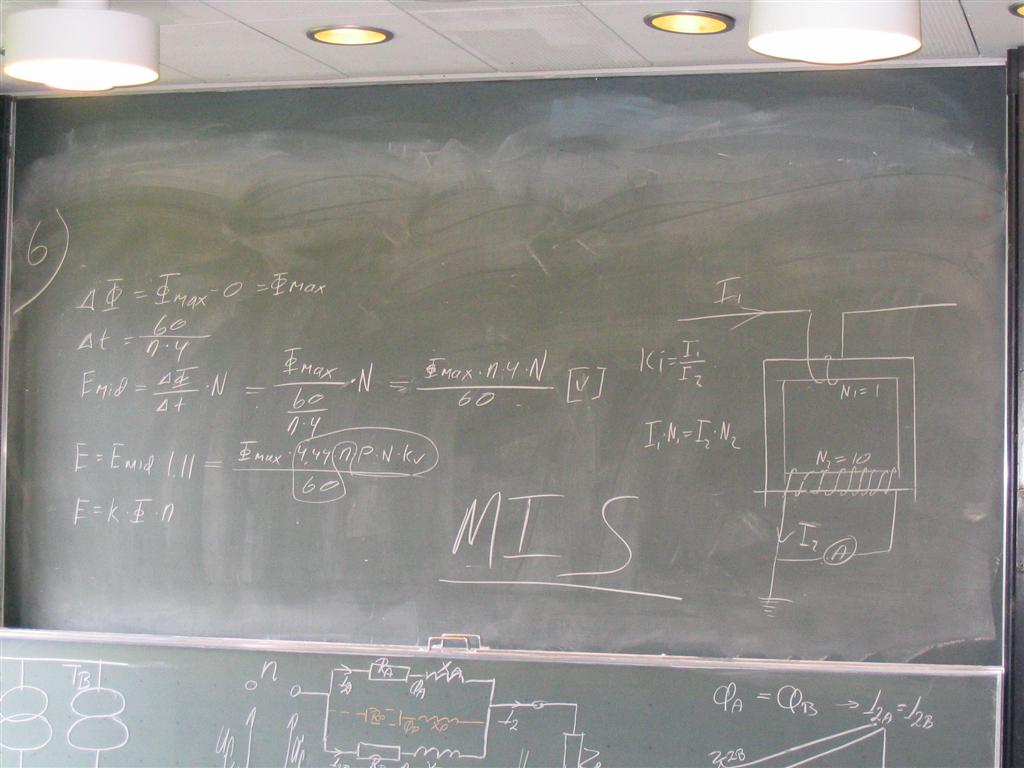 6)
ΔΦ = Φmax - 0 = Φmax
Δt = 60 / n·4
Emid = ΔΦ/Δt · N = Φmax / (60 / n·4) · N = Φmax·n·4·N / 60 [V]
E = Emid · 1.11 = Φmax · 4,44 n P·N·Kv / 60
E = k·Φ·n
Ki = I1/I2
I1·N1 = I2·N2
MIS
I1
N1 = 1
N2 = 10
I2
A
TB
n
I2A
RA
XA
I2
φA = φB → I2A = I2B